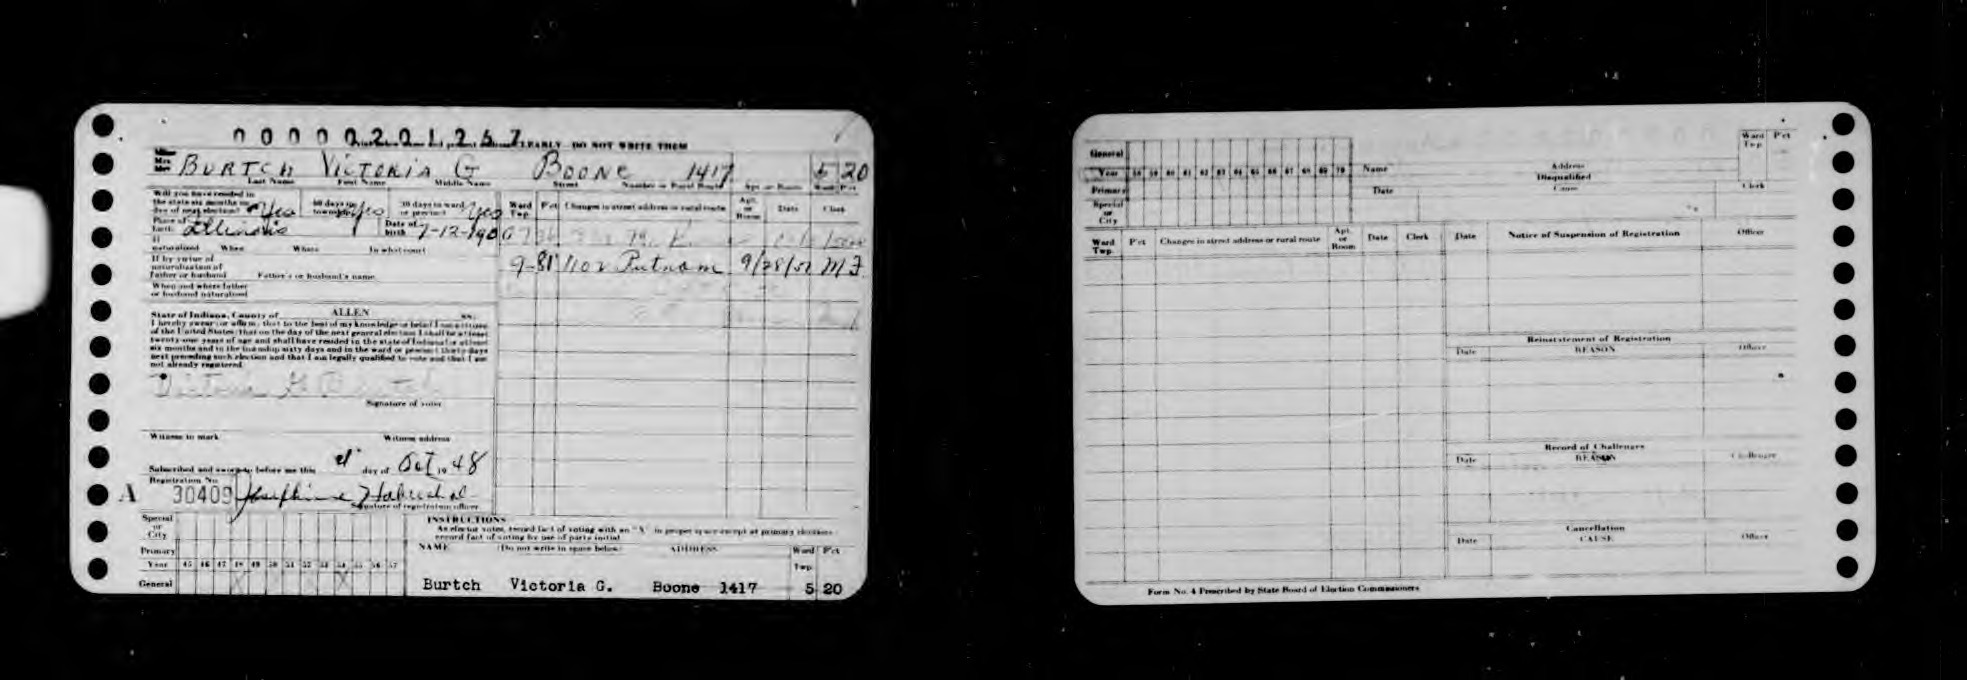 0000020126 7 CLEARLY DO NOT WRITE THEM
Miss
Mrs
Mr BURTCH VICTORIA G BOONE 1417 5 20
Last Name First Name Middle Name Street Number or Rural Route Apt. or Room Ward P'ct
Will you have resided in the state six months on day of next election? Yes 60 days in township Yes 30 days in ward or precinct Yes
Ward Twp. P'ct Changes in street address or rural route Apt. or Room Date Clerk
Place of birth Illinois Date of birth 7-12-190
If naturalized When Where In what court
9-81 1102 Putnam 9/28/52 MF
If by virtue of naturalization of father or husband Father's or husband's name
When and where father or husband naturalized
State of Indiana, County of ALLEN SS:
I hereby swear or affirm, that to the best of my knowledge or belief I am a citizen
of the United States; that on the day of the next general election I shall be at least
twenty-one years of age and shall have resided in the state of Indiana for at least
six months and in the township sixty days and in the ward or precinct thirty days
next preceding such election and that I am legally qualified to vote and that I am
not already registered
Victoria G Burtch
Signature of voter
Witness to mark Witness address
Subscribed and sworn to before me this day of Oct 1948
Registration No.
A 30409 Josephine
Signature of registration officer
Special or City
Primary
Year 45 46 47 48 49 50 51 52 53 54 55 56 57
General
INSTRUCTIONS
As elector votes, record fact of voting with an "X" in proper space except at primary elections
record fact of voting by use of party initial
NAME (Do not write in space below) ADDRESS Ward Twp. P'ct
Burtch Victoria G. Boone 1417 5 20
General
Year 58 59 60 61 62 63 64 65 66 67 68 69 70
Primary
Special or City
Name Address Ward Twp P'ct
Disqualified
Date Cause Clerk
Ward Twp. P'ct Changes in street address or rural route Apt. or Room Date Clerk
Date Notice of Suspension of Registration Officer
Reinstatement of Registration
Date REASON Officer
Record of Challenges
Date REASON Challenger
Cancellation
Date CAUSE Officer
Form No. 4 Prescribed by State Board of Election Commissioners